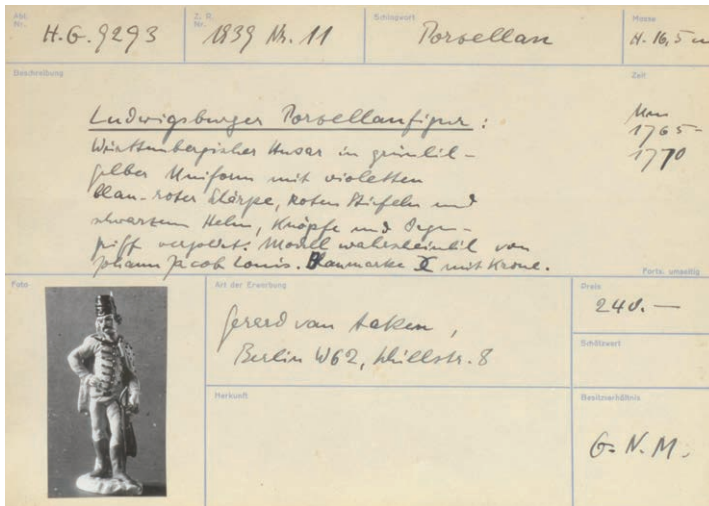 Abt. Nr.
H.G. 9293
Z. R. Nr.
1839 Nr. 11
Schlagwort
Porzellan
Masse
H. 16,5 cm
Beschreibung
Zeit
Ludwigsburger Porzellanfigur:
Um
1765-
1770
Württembergischer Husar in grünlich-
gelber Uniform mit violetten
blau-roter Schärpe, roten Stiefeln und
schwarzem Helm, Knöpfe und Degen-
griff vergoldet. Modell wahrscheinlich von
Johann Jacob Louis. Blaumarke mit Krone.
Forts. umseitig
Foto
Art der Erwerbung
Gererd van Aaken,
Berlin W62, Schillstr. 8
Preis
240.—
Schätzwert
Herkunft
Besitzverhältnis
G. N. M.